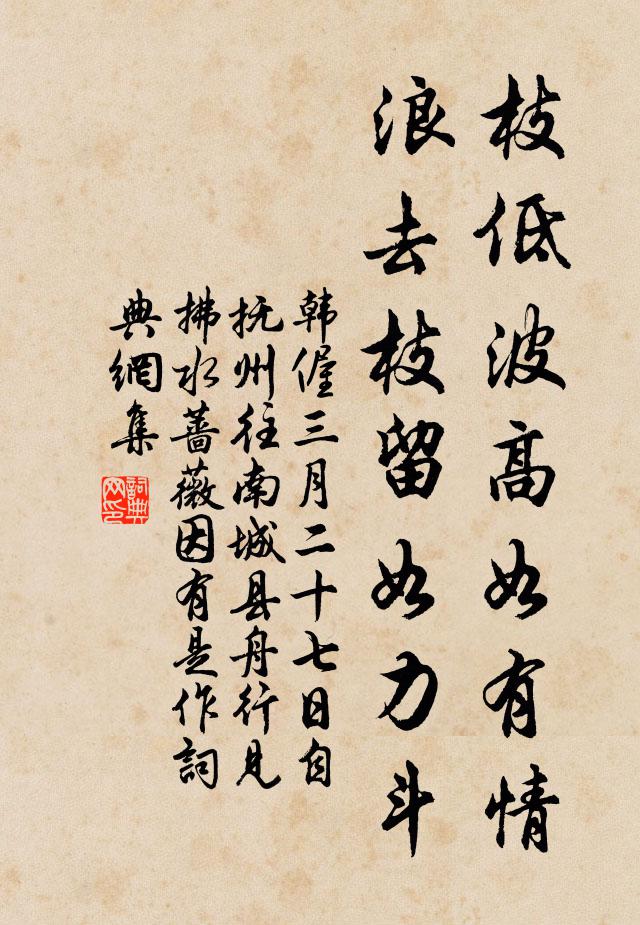 枝低波高如有情
浪去枝留如力斗
韩偓三月二十七日自
抚州往南城县舟行见
拂水蔷薇因有是作词
典網集
詞典
网印